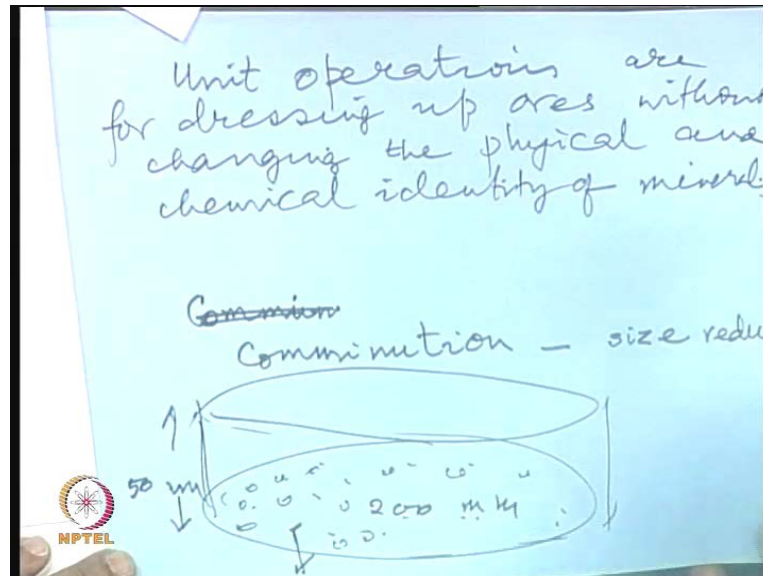 Unit operations are
for dressing up ores without
changing the physical and
chemical identity of mineral
Commun
Comminution – size redu
50 mm
200 mm
NPTEL